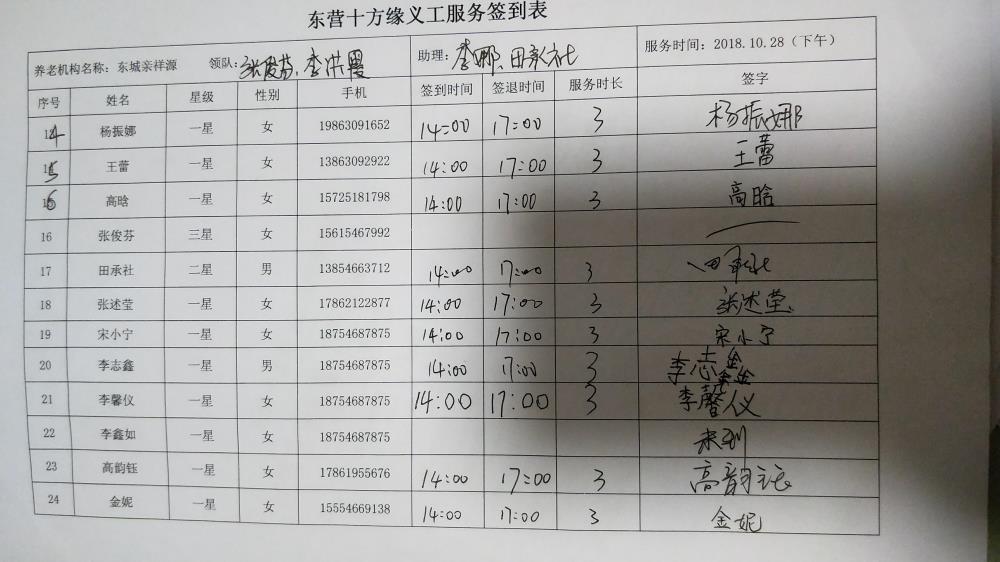 东营十方缘义工服务签到表
养老机构名称：东城亲祥源 领队：张俊芬、李洪霞 助理：李娜、田承社 服务时间：2018.10.28（下午）
序号 姓名 星级 性别 手机 签到时间 签退时间 服务时长 签字
14 杨振娜 一星 女 19863091652 14:00 17:00 3 杨振娜
15 王蕾 一星 女 13863092922 14:00 17:00 3 王蕾
16 高晗 一星 女 15725181798 14:00 17:00 3 高晗
16 张俊芬 三星 女 15615467992
17 田承社 二星 男 13854663712 14:00 17:00 3 田承社
18 张述莹 一星 女 17862122877 14:00 17:00 3 张述莹
19 宋小宁 一星 女 18754687875 14:00 17:00 3 宋小宁
20 李志鑫 一星 男 18754687875 14:00 17:00 3 李志鑫
21 李馨仪 一星 女 18754687875 14:00 17:00 3 李馨仪
22 李鑫如 一星 女 18754687875 未到
23 高韵钰 一星 女 17861955676 14:00 17:00 3 高韵钰
24 金妮 一星 女 15554669138 14:00 17:00 3 金妮